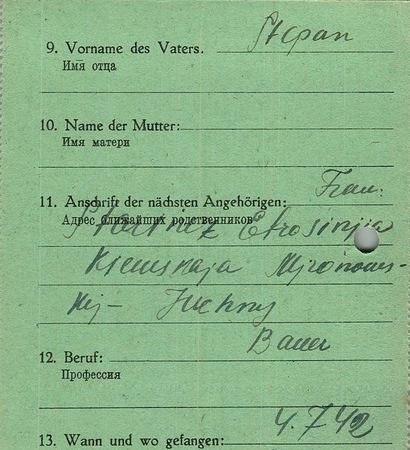 9. Vorname des Vaters. Stepan
Имя отца
10. Name der Mutter:
Имя матери
11. Anschrift der nächsten Angehörigen: Frau:
Адрес ближайших родственников
Kiewskaja
Bauer
12. Beruf:
Профессия
4.7.42
13. Wann und wo gefangen: